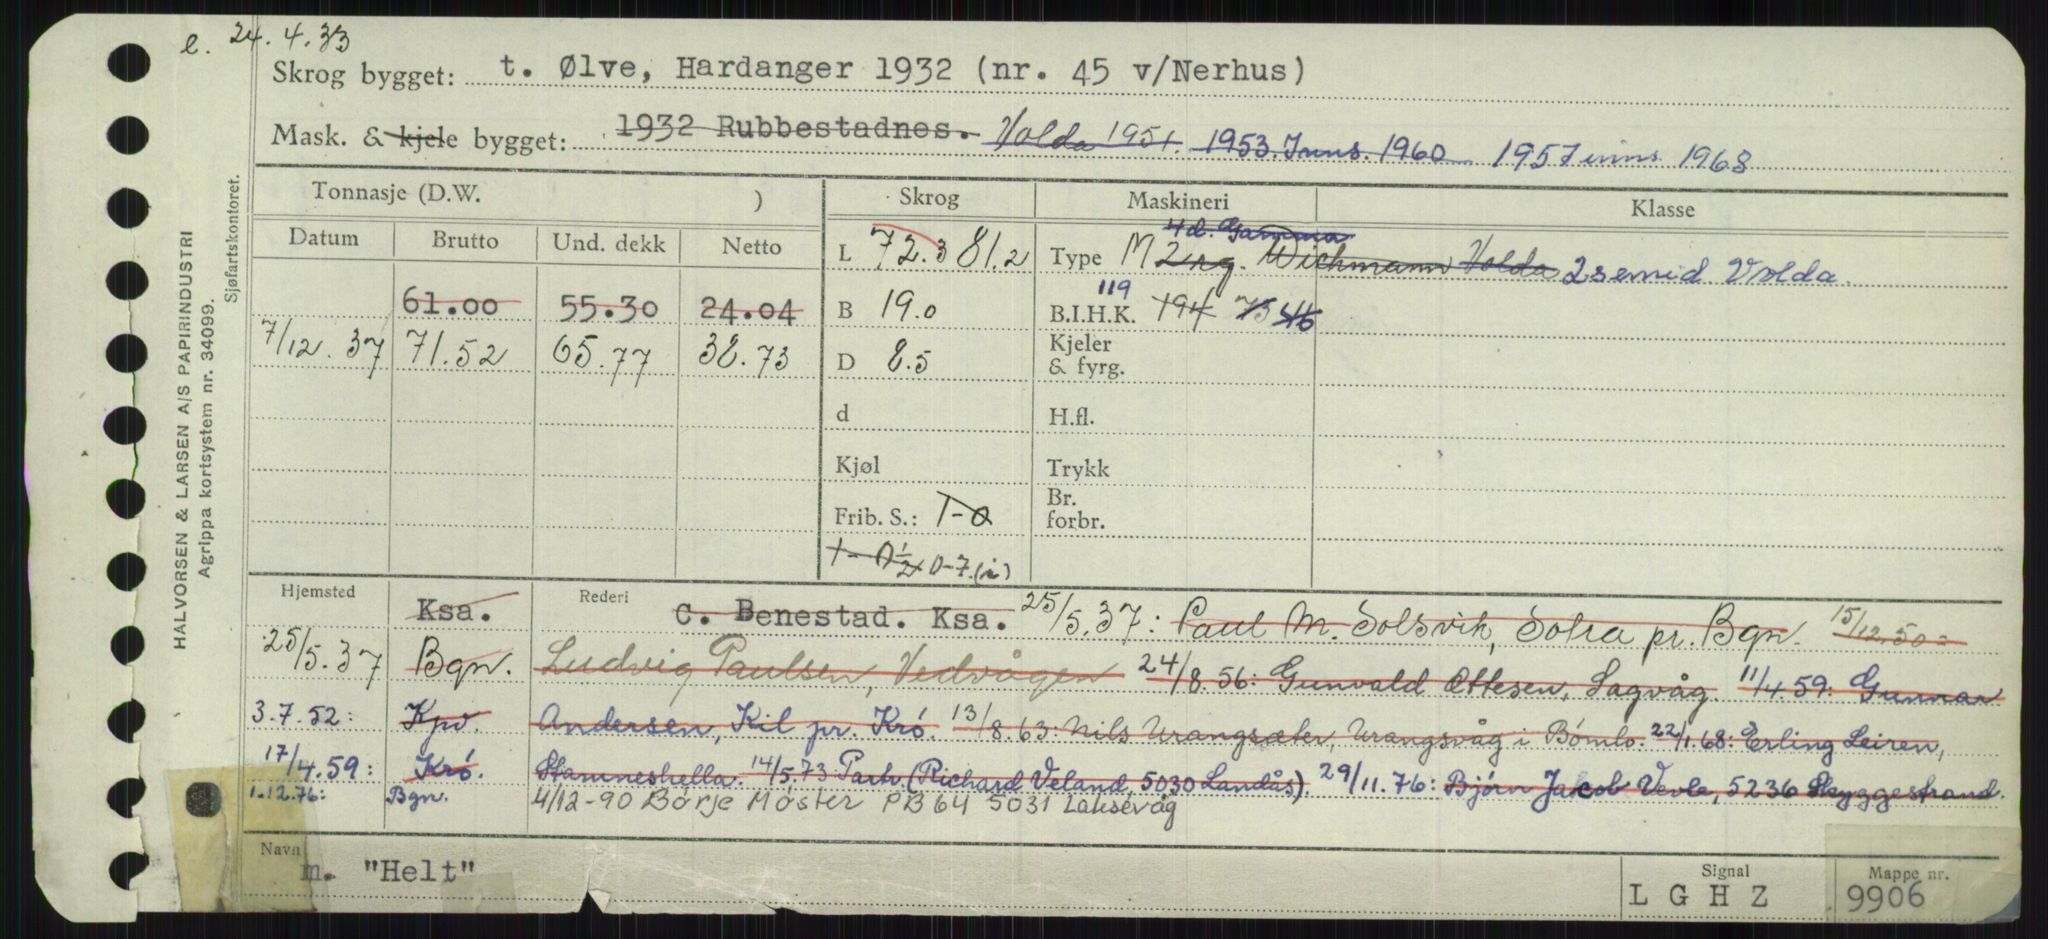 e. 24.4.33
Skrog bygget: t. Ølve, Hardanger 1932 (nr. 45 v/Nerhus)
Mask. & kjele bygget: 1932 Rubbestadnes. Volda 1951 1953. Inns. 1960 1957 inns 1968
Tonnasje (D.W. ) Skrog Maskineri Klasse
Datum Brutto Und. dekk Netto
L 72.3 81.2
4 d. Gamma
Type M 2 rg. Wichmann Volda 2 semid Volda.
61.00 55.30 24.04
B 19.0
119
B.I.H.K. 194 75
7/12.37 71.52 65.77 38.73
D 8.5
Kjeler & fyrg.
d
H.fl.
Kjøl
Trykk
Frib. S.: 1-0
Br. forbr.
1-0½ 0-7.(i)
Hjemsted Ksa. Rederi C. Benestad. Ksa. 25/5.37: Paul M. Solsvik, Sotra pr. Bgn. 15/12.50=
25/5.37 Bgn. Ludvig Paulsen, Vedvågen 24/8.56: Gunvald Ottesen, Sagvåg. 11/4.59: Gunnar
3.7.52: Kpv. Andersen, Kil pr. Krö. 13/8.63: Nils Urangsæter, Urangsvåg i Bömlo. 22/1.68: Erling Leiren,
17/4.59: Krö. Stamneshella. 14/5.73 Partr. (Richard Veland, 5030 Landås). 29/11.76: Bjørn Jacob Vevle, 5236 Skyggestrand.
1.12.76: Bgn. 4/12-90 Børje Møster PB 64 5031 Laksevåg
Navn m. "Helt"
Signal L G H Z
Mappe nr. 9906
HALVORSEN & LARSEN A/S PAPIRINDUSTRI
Agrippa kortsystem nr. 34099.
Sjøfartskontoret.